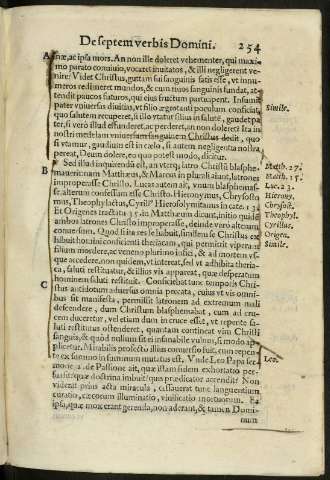 De septem verbis Domini. 254
A næ, ac ipsa mors. An non ille doleret vehementer, qui maxi-
mo parato conuiuio, vocaret inuitatos, & illi negligerent ve-
nire? Videt Christus, guttam sui sanguinis satis esse, vt innu-
meros redimeret mundos, & cum tuius sanguinis fundat, at-
tendit paucos futuros, qui eius fructum participent. Insumit
pater vniuersas diuitias, vt filio ægrotanti poculum conficiat, Simile.
quo salutem recuperet, si illo vtatur filius in salute, gaudet pa-
ter, si verò illud effunderet, ac perderet, an non doleret? ita in
nostri medelam vniuersum sanguinem Christus dedit, quo
si vtamur, gaudium est in cælo, si autem negligentia nostra
pereat, Deum dolere, eo quo potest modo, dicitur.
Sed illud inquirendum est, an vterq; latro Christū blasphe- Matth. 27.
B mauerit: nam Matthæus, & Marcus in plurali aiunt, latrones Marc. 15.
improperasse Christo. Lucas autem ait, vnum blasphemas- Luc. 23.
se, alterum confessum esse Christū. Hieronymus, Chrysosto- Hierony.
mus, Theophylactus, Cyrill° Hierosolymitanus in cate. 13. Chrysost.
Et Origenes tractatu 35. in Matthæum dicunt, initio quidē Theophyl.
ambos latrones Christo improperasse, deinde vero alterum Cyrillus.
conuersum. Quod si ita res se habuit, simile in se Christus ex- Origen.
hibuit homini conficienti theriacam, qui permittit vipera Simile.
filium mordere, ac veneno plurimo infici, & ad mortem vs-
que accedere, non quidem, vt intereat, sed vt adhibita theria-
ca, saluti restituatur, & illius vis appareat, quæ desperatum
C hominem saluti restituit. Conficiebat tunc temporis Chris-
tus antidotum aduersus omnia peccata, cuius vt vis omni-
bus sit manifesta, permissit latronem ad extremum mali
descendere, dum Christum blasphemabat, cum ad cru-
cem duceretur, vel etiam dum in cruce esset, vt repente sa-
luti restitutus ostenderet, quantam contineat vim Christi
sanguis, & quòd nullum sit ei insanabile vulnus, si modo ap-
plicetur. Mirabilis profecto illius conuersio fuit, cum repen-
te ex summo in summum mutatus est. Vnde Leo Papa ser- Leo.
mone 2. de Passione ait, quæ istam fidem exhortatio per-
suasit? quæ doctrina imbuit? quis prædicator accendit? Non
viderat prius acta miracula, cessauerat tunc languentium
curatio, cæcorum illuminatio, viuificatio mortuorum. Ea
ipsa, quæ mox erant gerenda, non aderant, & tamen Domi-
num